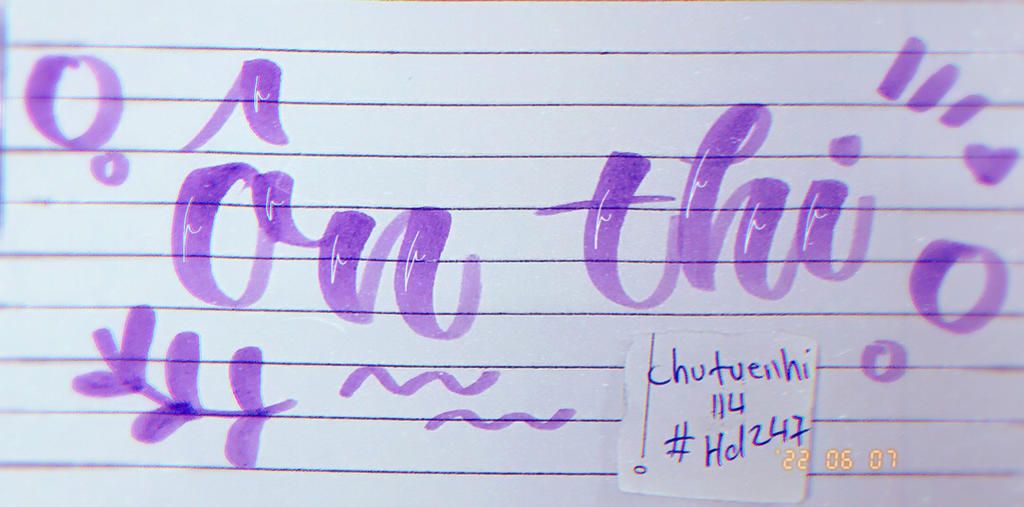 Ôn thi
chutuenhi
114
#Hd247
'22 06 07